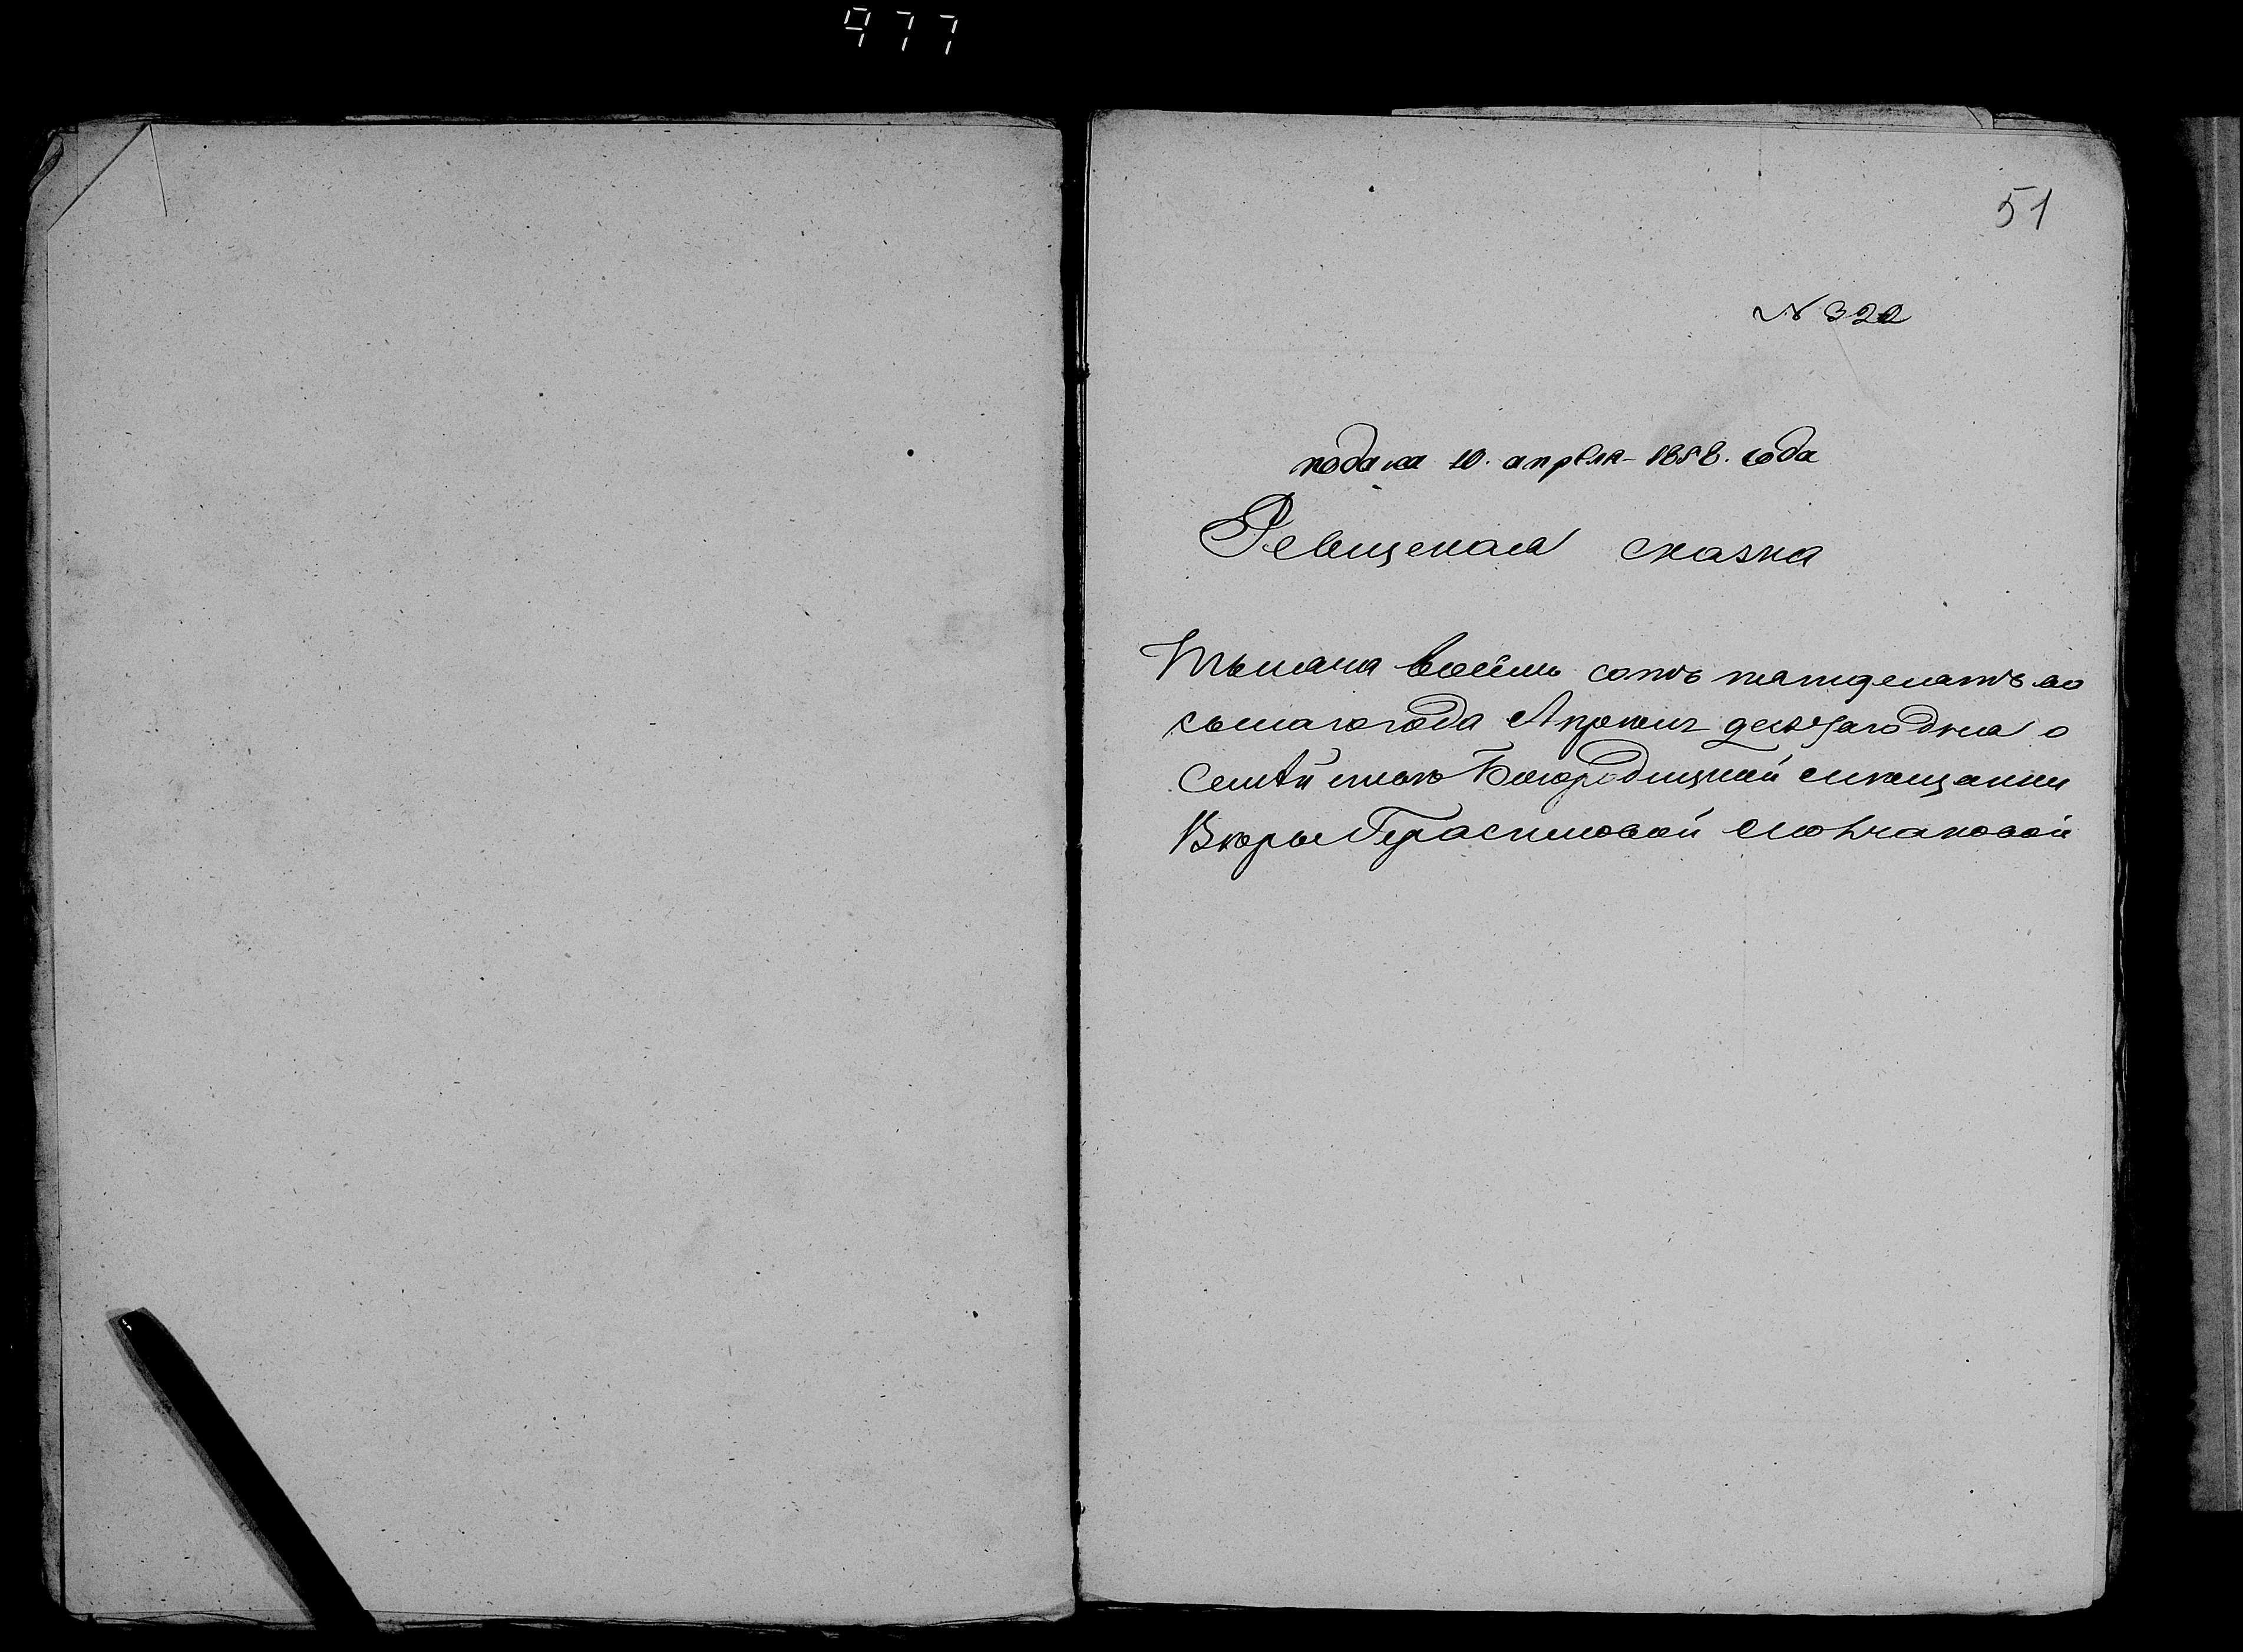 977
51
№ 322
подана 10. апреля 1858. года
Ревизская сказка
Тысяча восемь сотъ пятидесятъ во
сьмаго года Апреля десятаго дня о
семействе Богородицкой мещанки
Гера симовой